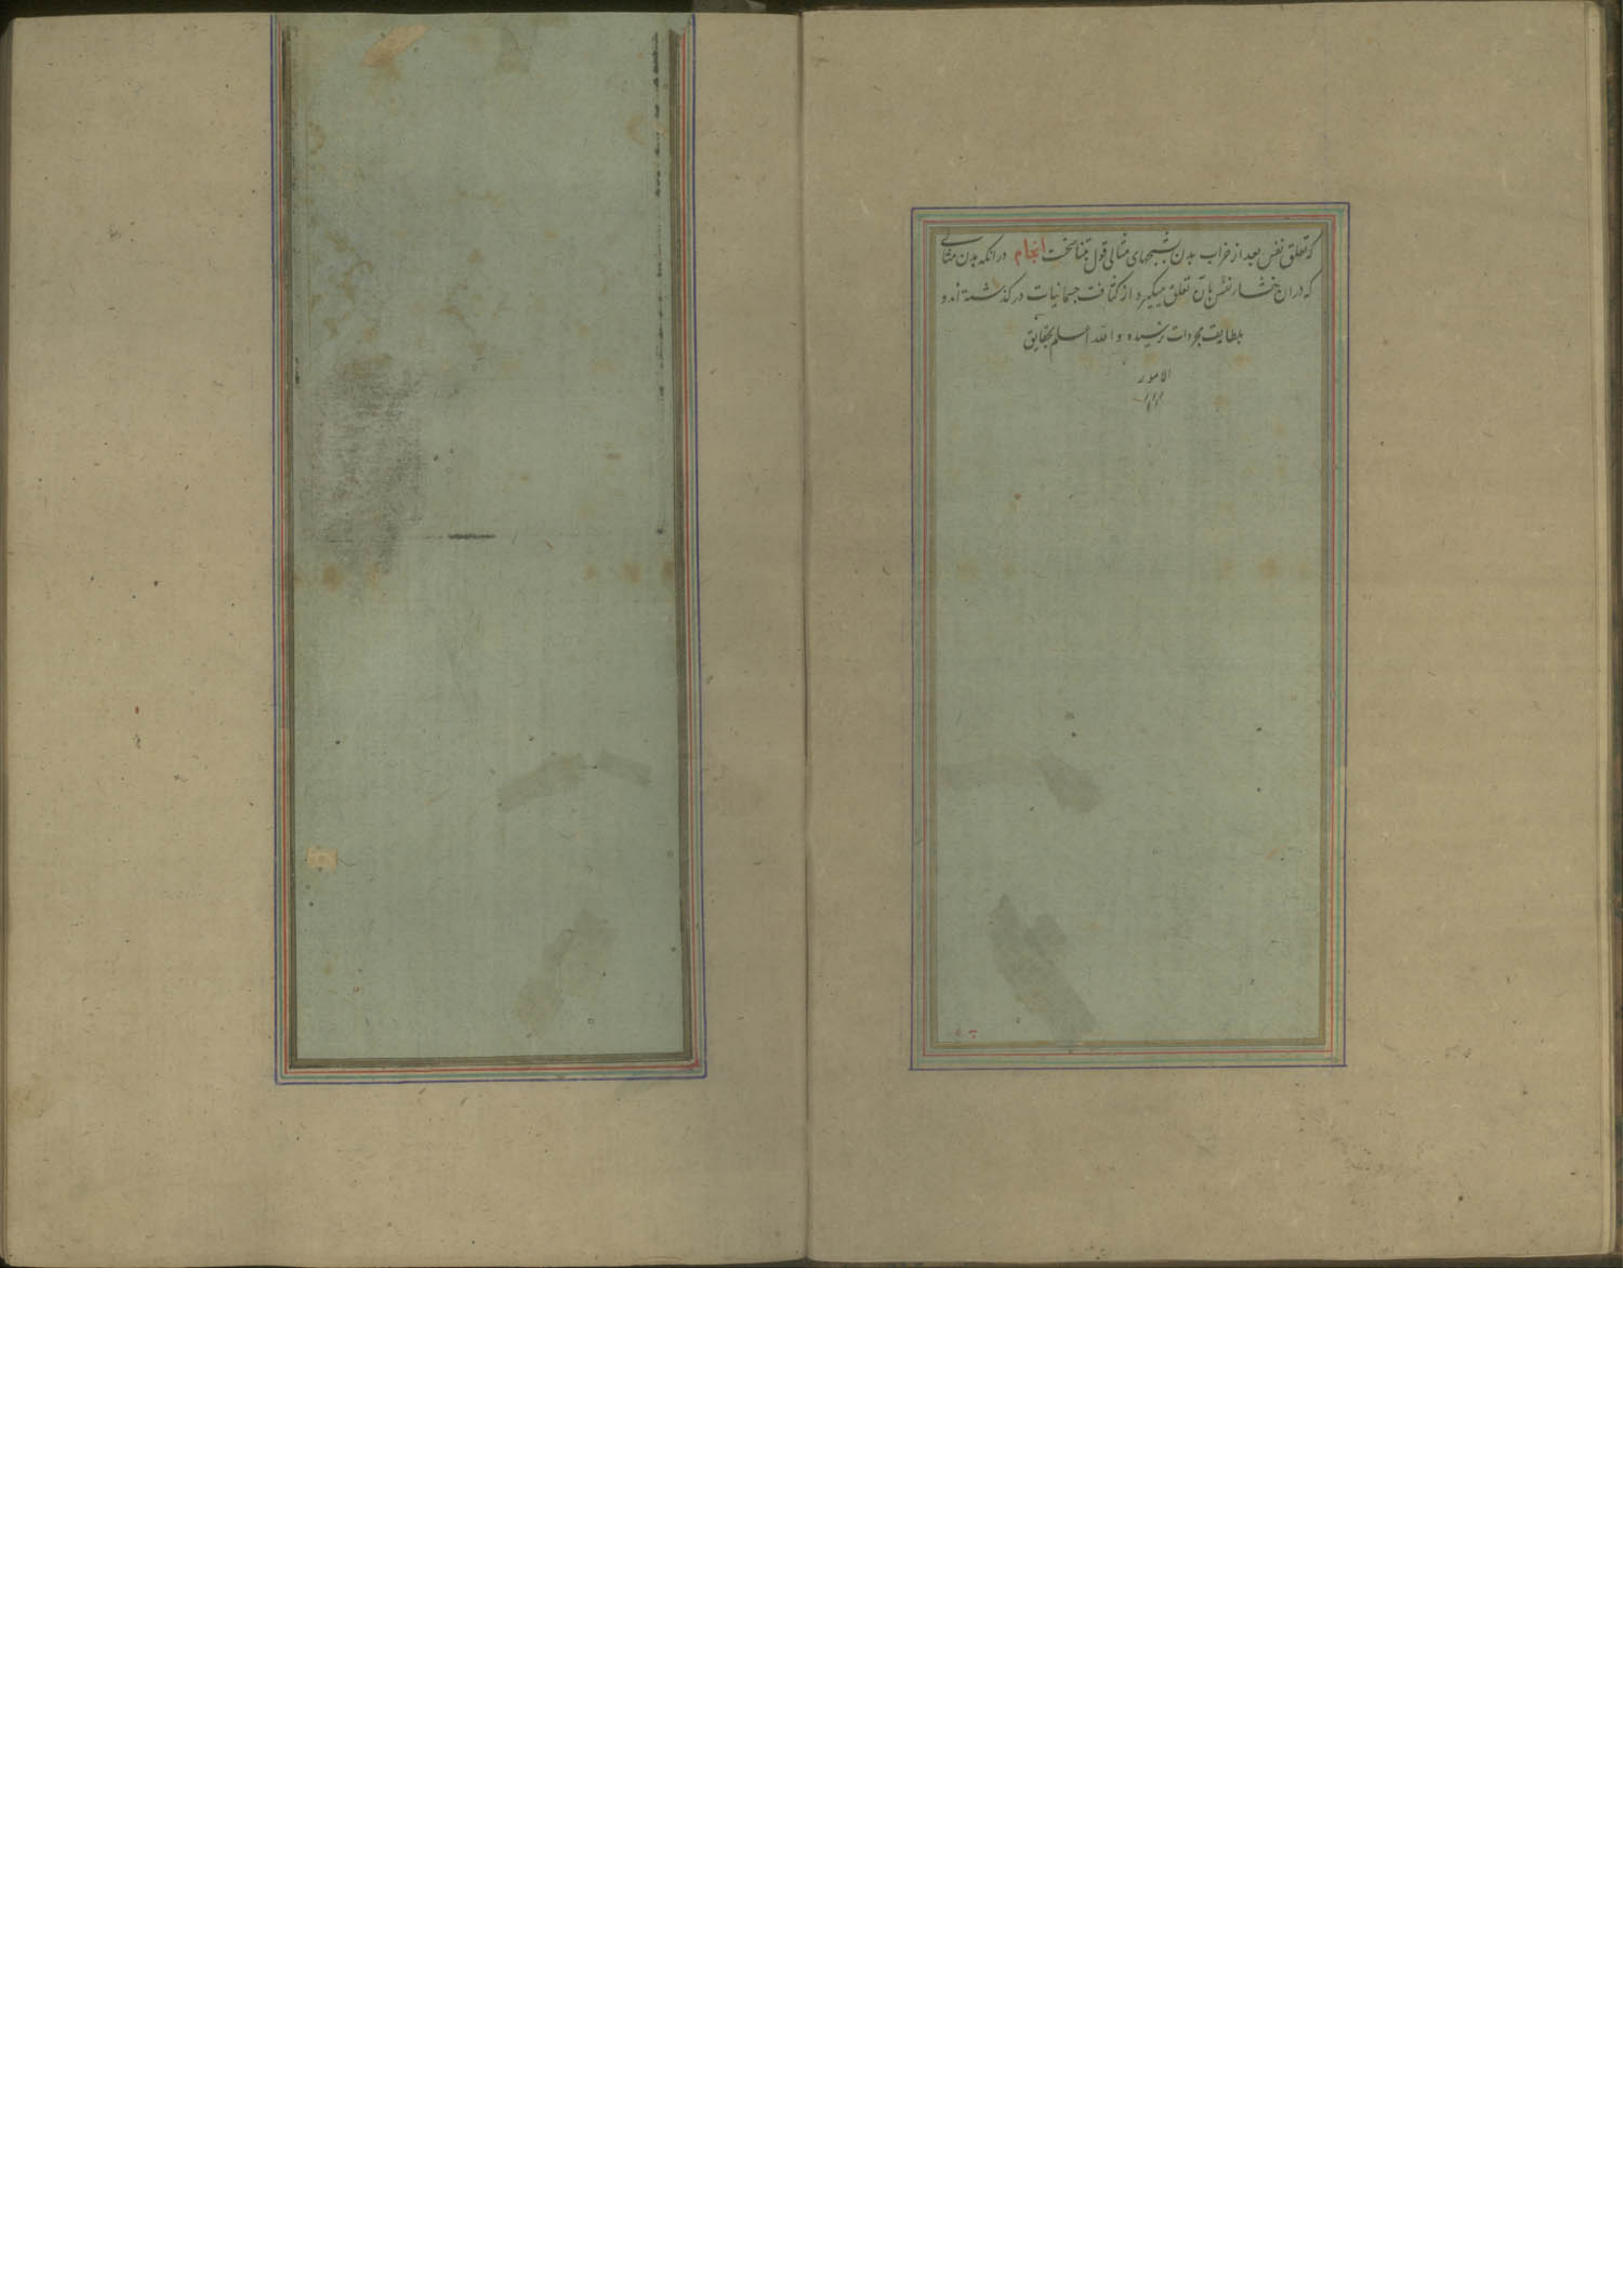 که تعلق نفس بعد از خراب بدن بشبحهای مثالی قول بتناسخت انجام در انکه بدن مثالی
که در ان نفس بان تعلق میکیرد از کثافت جسمانیات در کذشته اند و
بلطایف مجردات نرسیده والله اعلم بحقایق
الامور